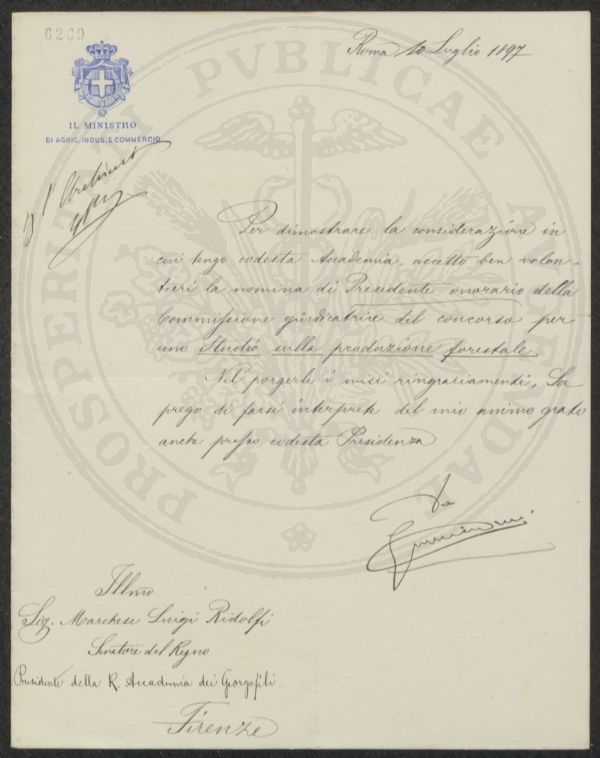 6269
Roma 10 Luglio 1897
IL MINISTRO
DI AGRIC. INDUS. E COMMERCIO
Per dimostrare la considerazione in
cui tengo codesta Accademia, accetto ben volon-
tieri la nomina di Presidente onorario della
Commissione giudicatrice del concorso per
uno Studio sulla produzione forestale.
Nel porgerle i miei ringraziamenti, La
prego di farsi interprete del mio animo grato
anche presso codesta Presidenza
Illmo
Sig. Marchese Luigi Ridolfi
Senatore del Regno
Presidente della R. Accademia dei Georgofili
Firenze
PROSPERITATI PVBLICAE AVGENDAE